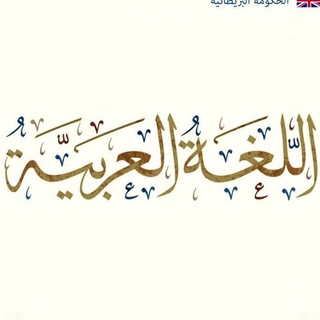 الحكومة البريطانية
اللُّغَةُ العَرَبِيَّةُ